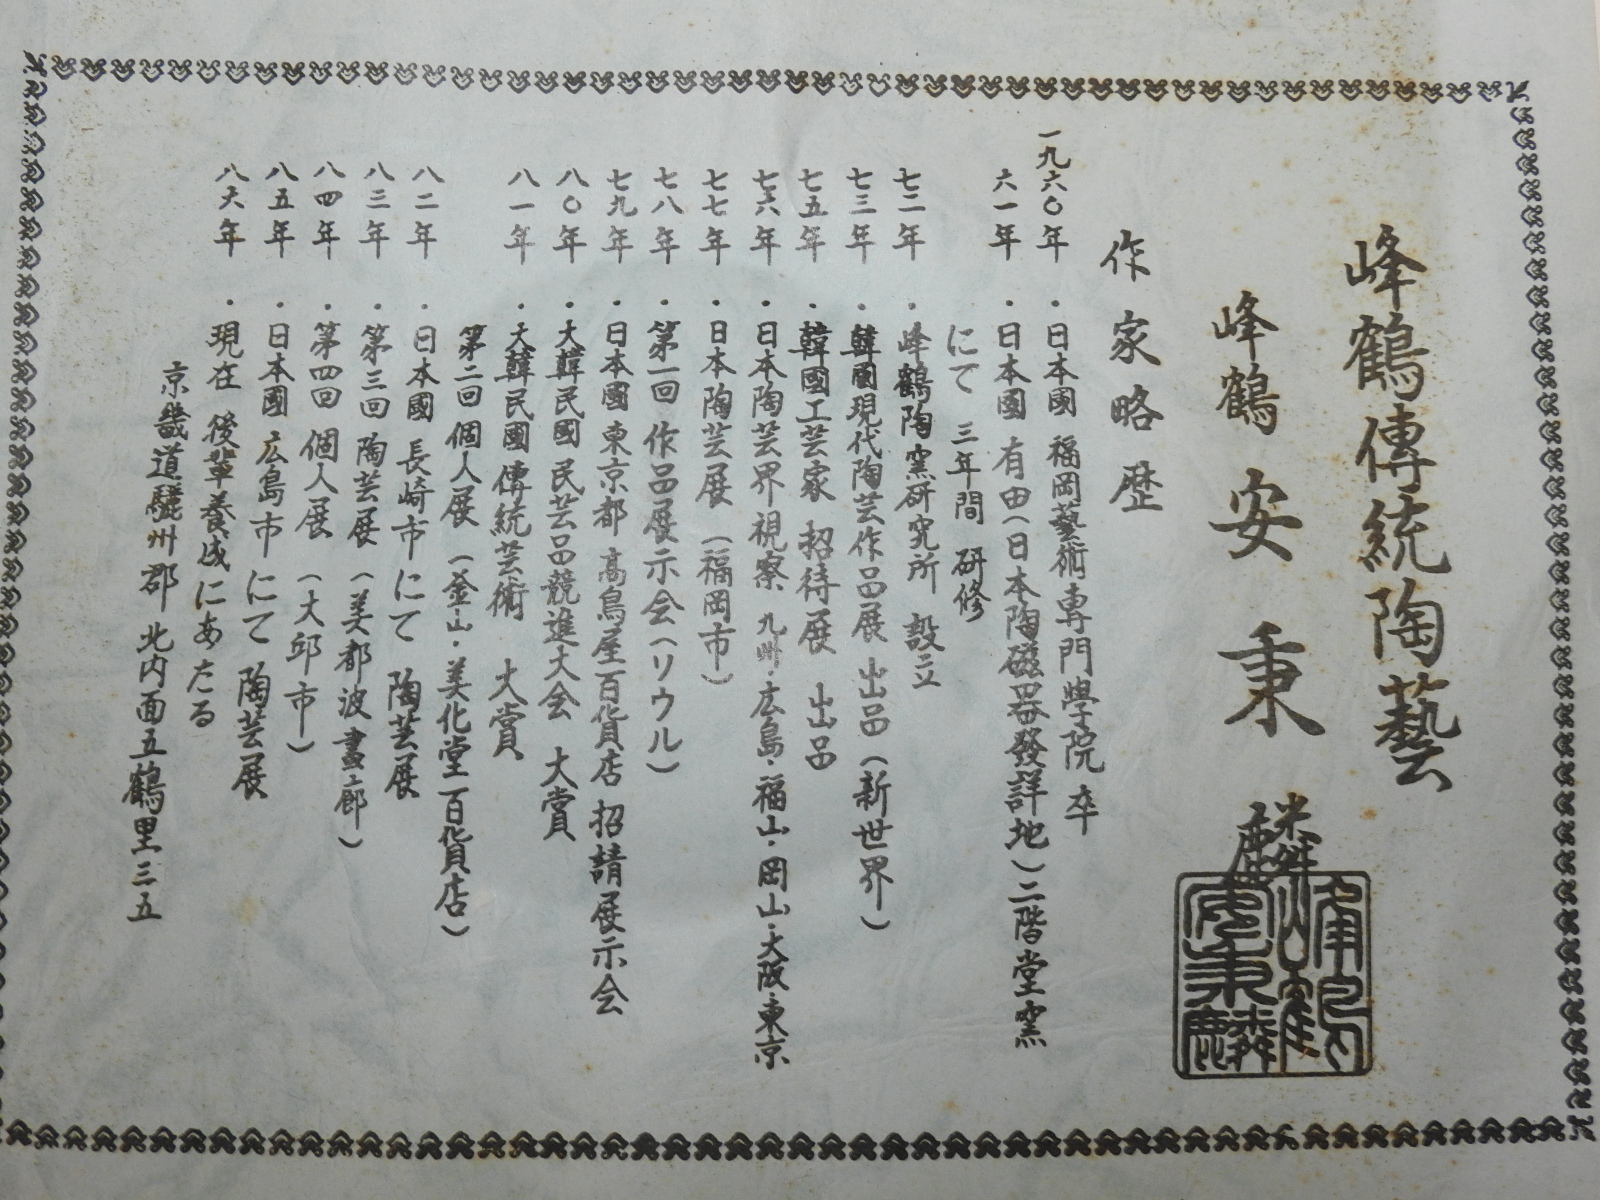 峰鶴傳統陶藝
峰鶴 安秉麟
作家略歴
一九六〇年 ・日本國 福岡藝術専門學院 卒
六一年 ・日本國 有田(日本陶磁器發詳地)二階堂窯
にて 三年間 研修
七二年 ・峰鶴陶窯研究所 設立
七三年 ・韓國現代陶芸作品展 出品(新世界)
七五年 ・韓國工芸家 招待展 出品
七六年 ・日本陶芸界 視察 九州・広島・福山・岡山・大阪・東京
七七年 ・日本陶芸展(福岡市)
七八年 ・第一回 作品展示会(ソウル)
七九年 ・日本國東京都 高島屋百貨店 招請展示会
八〇年 ・大韓民國 民芸品競進大会 大賞
八一年 ・大韓民國 傳統芸術 大賞
第二回 個人展 (釜山・美化堂百貨店)
八二年 ・日本國 長崎市にて 陶芸展
八三年 ・第三回 陶芸展 (美都波畫廊)
八四年 ・第四回 個人展 (大邱市)
八五年 ・日本國 広島市にて 陶芸展
八六年 ・現在 後輩養成にあたる
京畿道驪州郡 北内面五鶴里三五